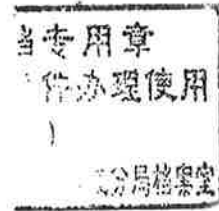 当专用章
件办理使用
）
分局档案室